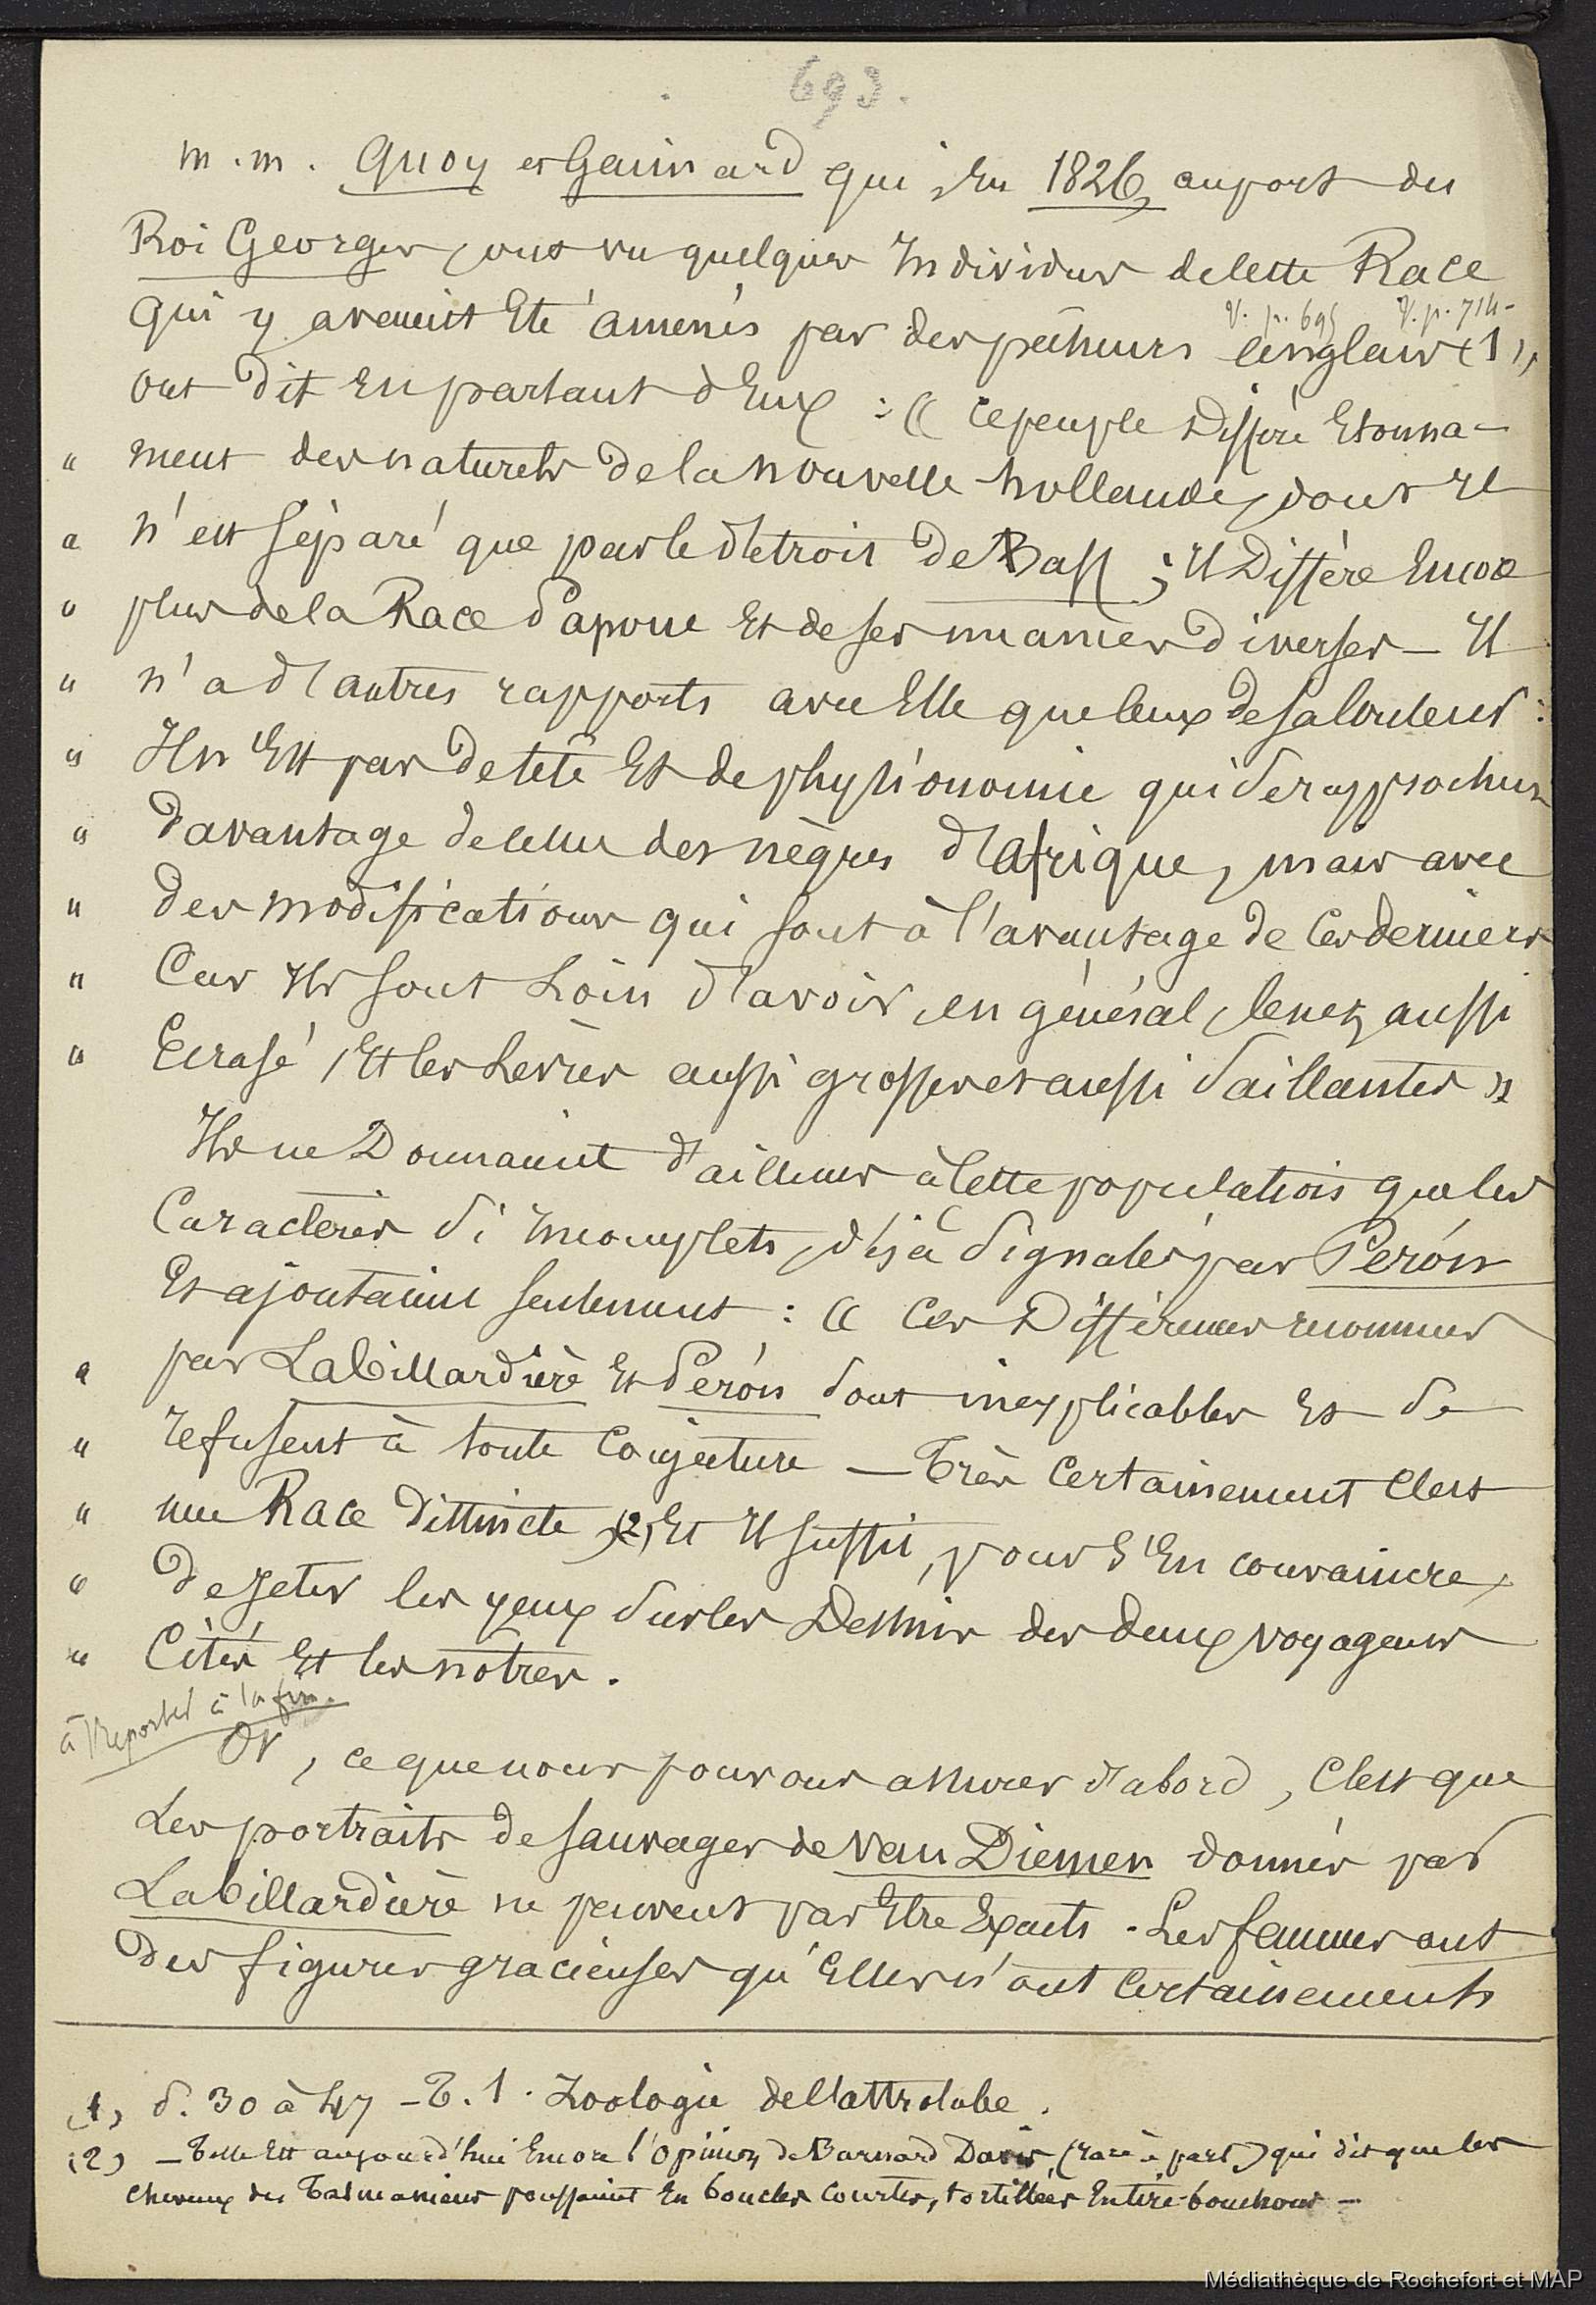 693.
m.m. Quoy et Gaimard qui, En 1826, au port du
Roi Georges, ont vu quelques Individus de cette Race
V. p. 695 V. p. 714-
qui y avaient Eté amenés par des pêcheurs anglais (1),
ont dit En parlant d'Eux : « Ce peuple Diffère Etonna-
" ment des naturels de la nouvelle-hollande, dont Il
" n'est séparé que par le détroit de Bass ; Il Diffère Encore
" plus de la Race Papoue Et de ses nuances diverses — Il
" n'a d'autres rapports avec Elle que ceux de sa couleur :
" Il n'Est pas de tête Et de physionomie qui se rapproche
" davantage de celle des nègres d'afrique, mais avec
" des modifications qui sont à l'avantage de Ces derniers
" Car Ils sont Loin d'avoir, en général, le nez aussi
" Ecrasé, Et les Lèvres aussi grosses et aussi saillantes »
Ils ne Donnaient d'ailleurs à Cette population que les
Caractères si Incomplets, déjà signalés par Péron
Et ajoutaient seulement : « Ces Différences reconnues
" par Labillardière Et Péron sont inexplicables Et se
" refusent à toute Conjecture — Très Certainement C'est
" une Race distincte (2), Et Il suffit, pour s'En convaincre,
" de jeter les yeux sur les Dessins des deux voyageurs
" Cités Et les nôtres.
à Reporter à la fin.
Or, ce que nous pouvons assurer d'abord, C'est que
Les portraits de sauvages de Van Diemen donnés par
Labillardière ne peuvent pas Etre Exacts. Les femmes ont
des figures gracieuses qu'Elles n'ont Certainements
(1) P. 30 à 47 – T. 1. Zoologie de l'astrolabe.
(2) — Telle Est aujourd'hui Encore l'Opinion de Barnard Davis, (race à part) qui dit que les
cheveux des Tasmaniens poussaient En boucles Courtes, tortillées En tire-bouchons —
Médiathèque de Rochefort et MAP